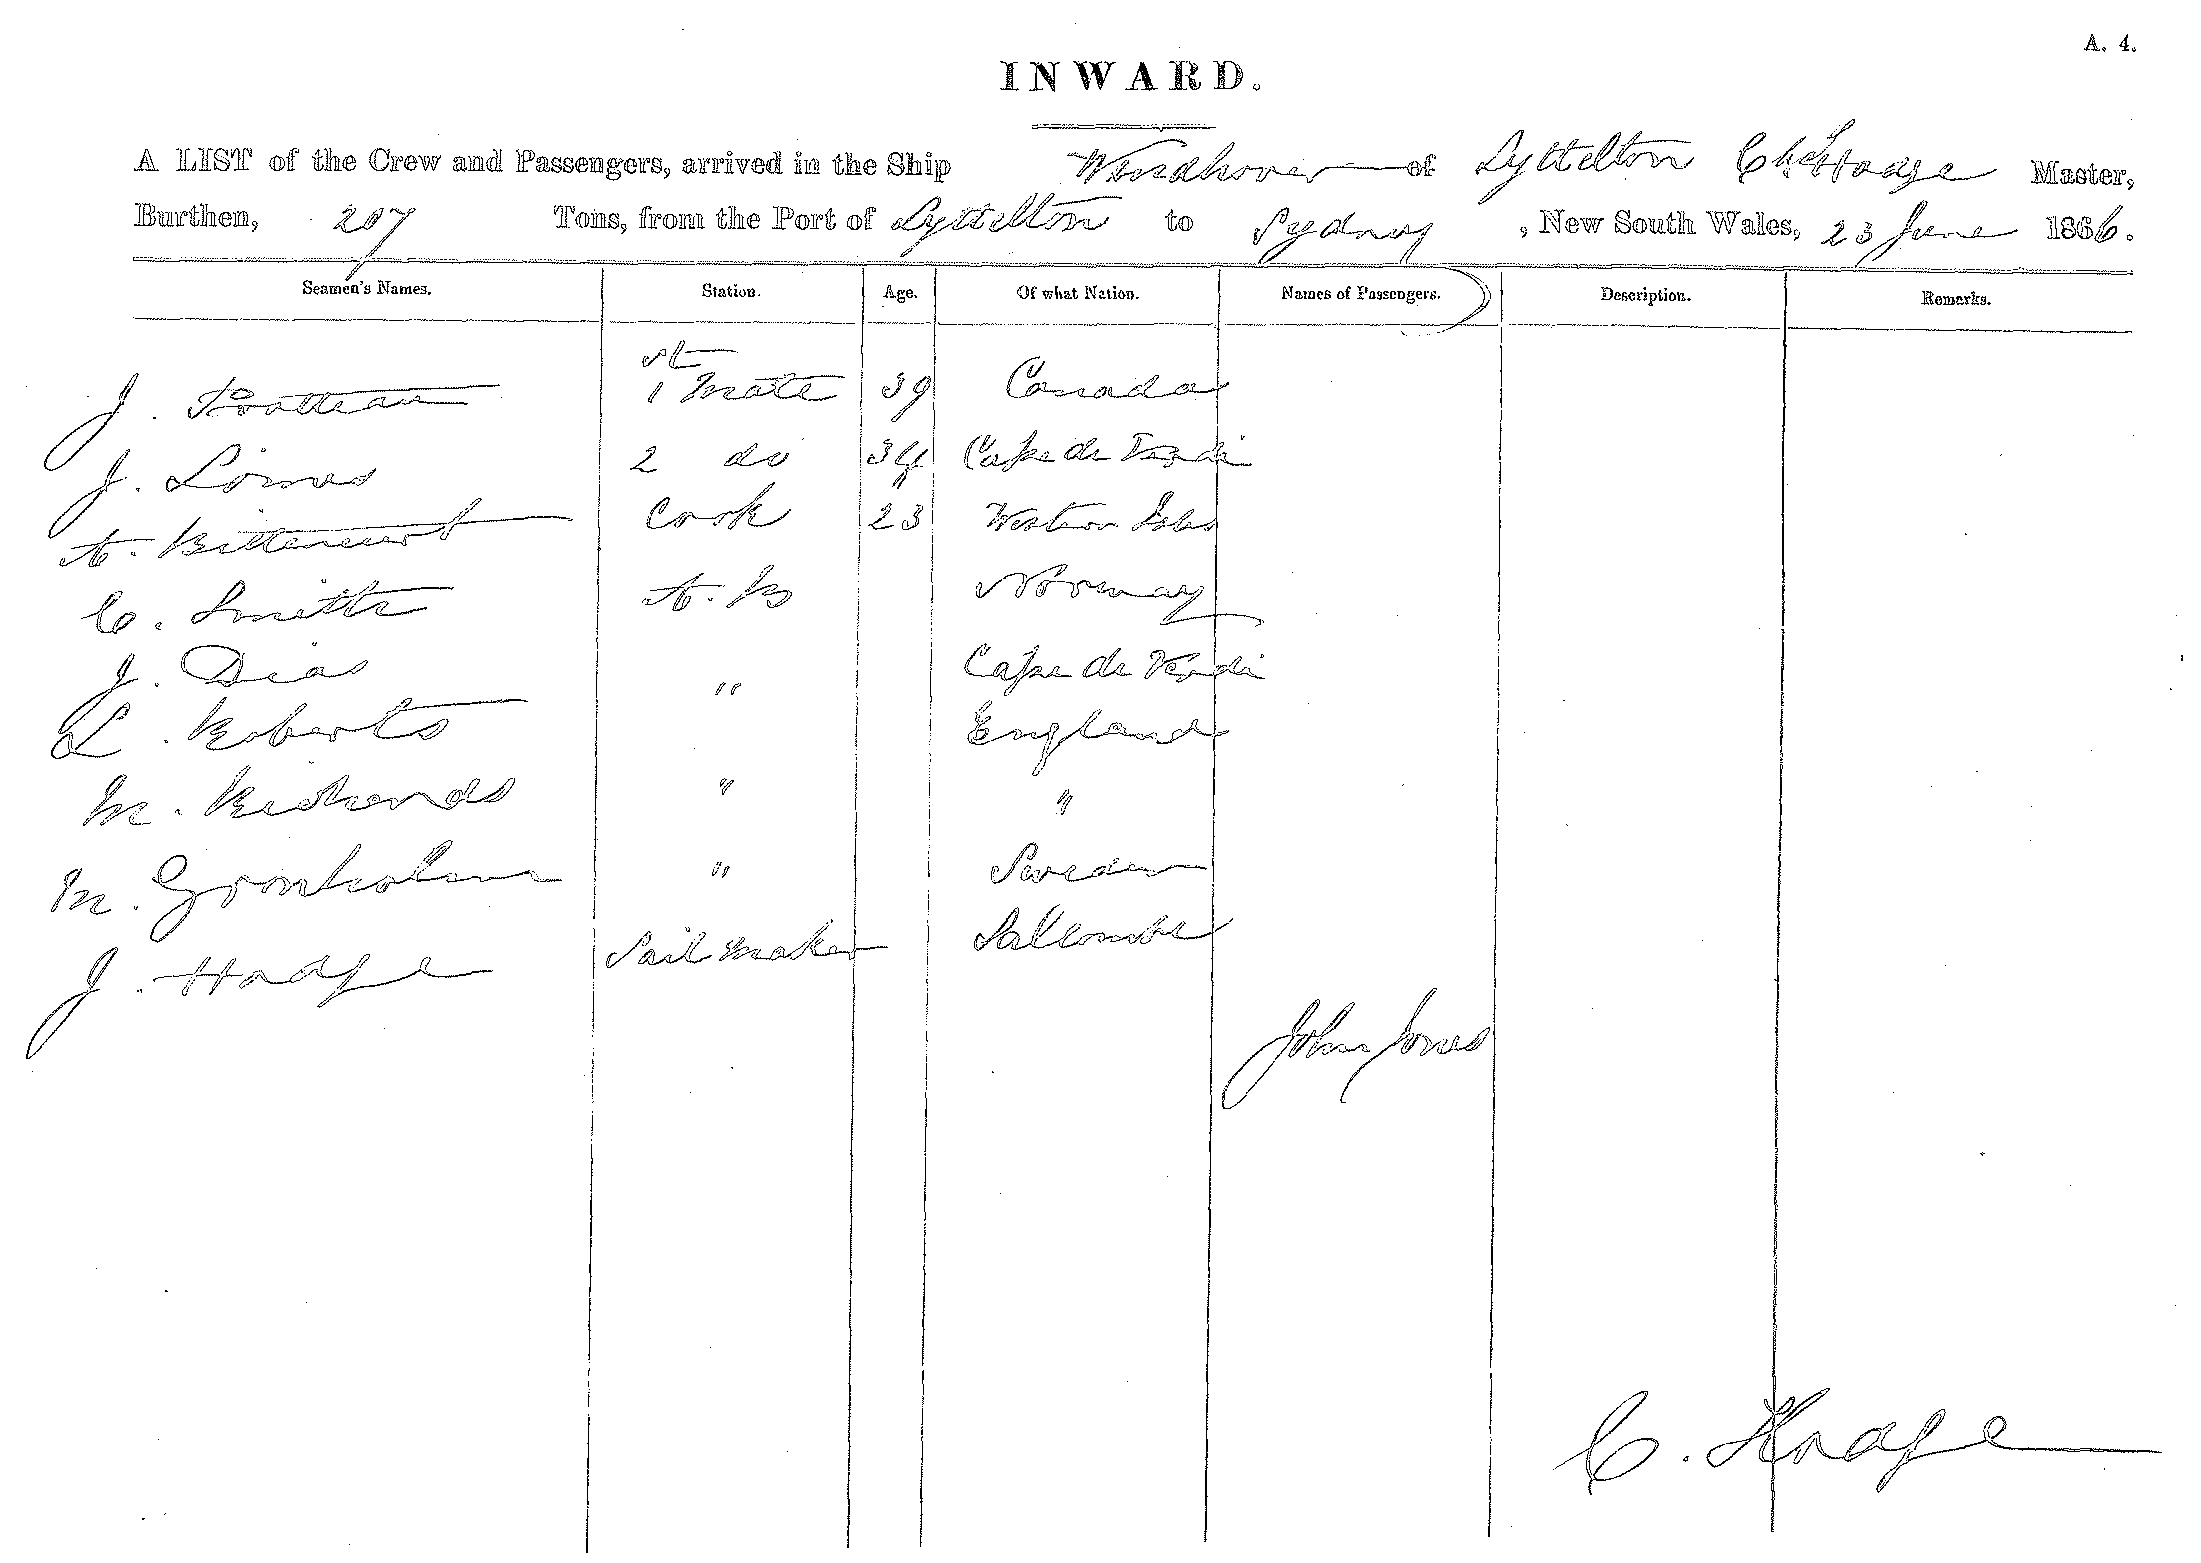 A. 4.
INWARD.
A LIST of the Crew and Passengers, arrived in the Ship Windhover of Lyttelton Hodge Master,
Burthen, 207 Tons, from the Port of Lyttelton to Sydney, New South Wales, 23 June 1866.
Seamen's Names. Station. Age. Of what Nation. Names of Passengers. Description. Remarks.
J. 1st Mate 39 Canada
J. 2 do 34 Cape de Verdi
A. Bittencurt Cook 23 Western Isles
C. Smith A.B Norway
J. Dias " Cape de Verdi
L. Roberts England
M. Richards " "
M. Gronholm " Sweden
J. Hodge Sail maker Salcombe
John Jones
C. Hodge